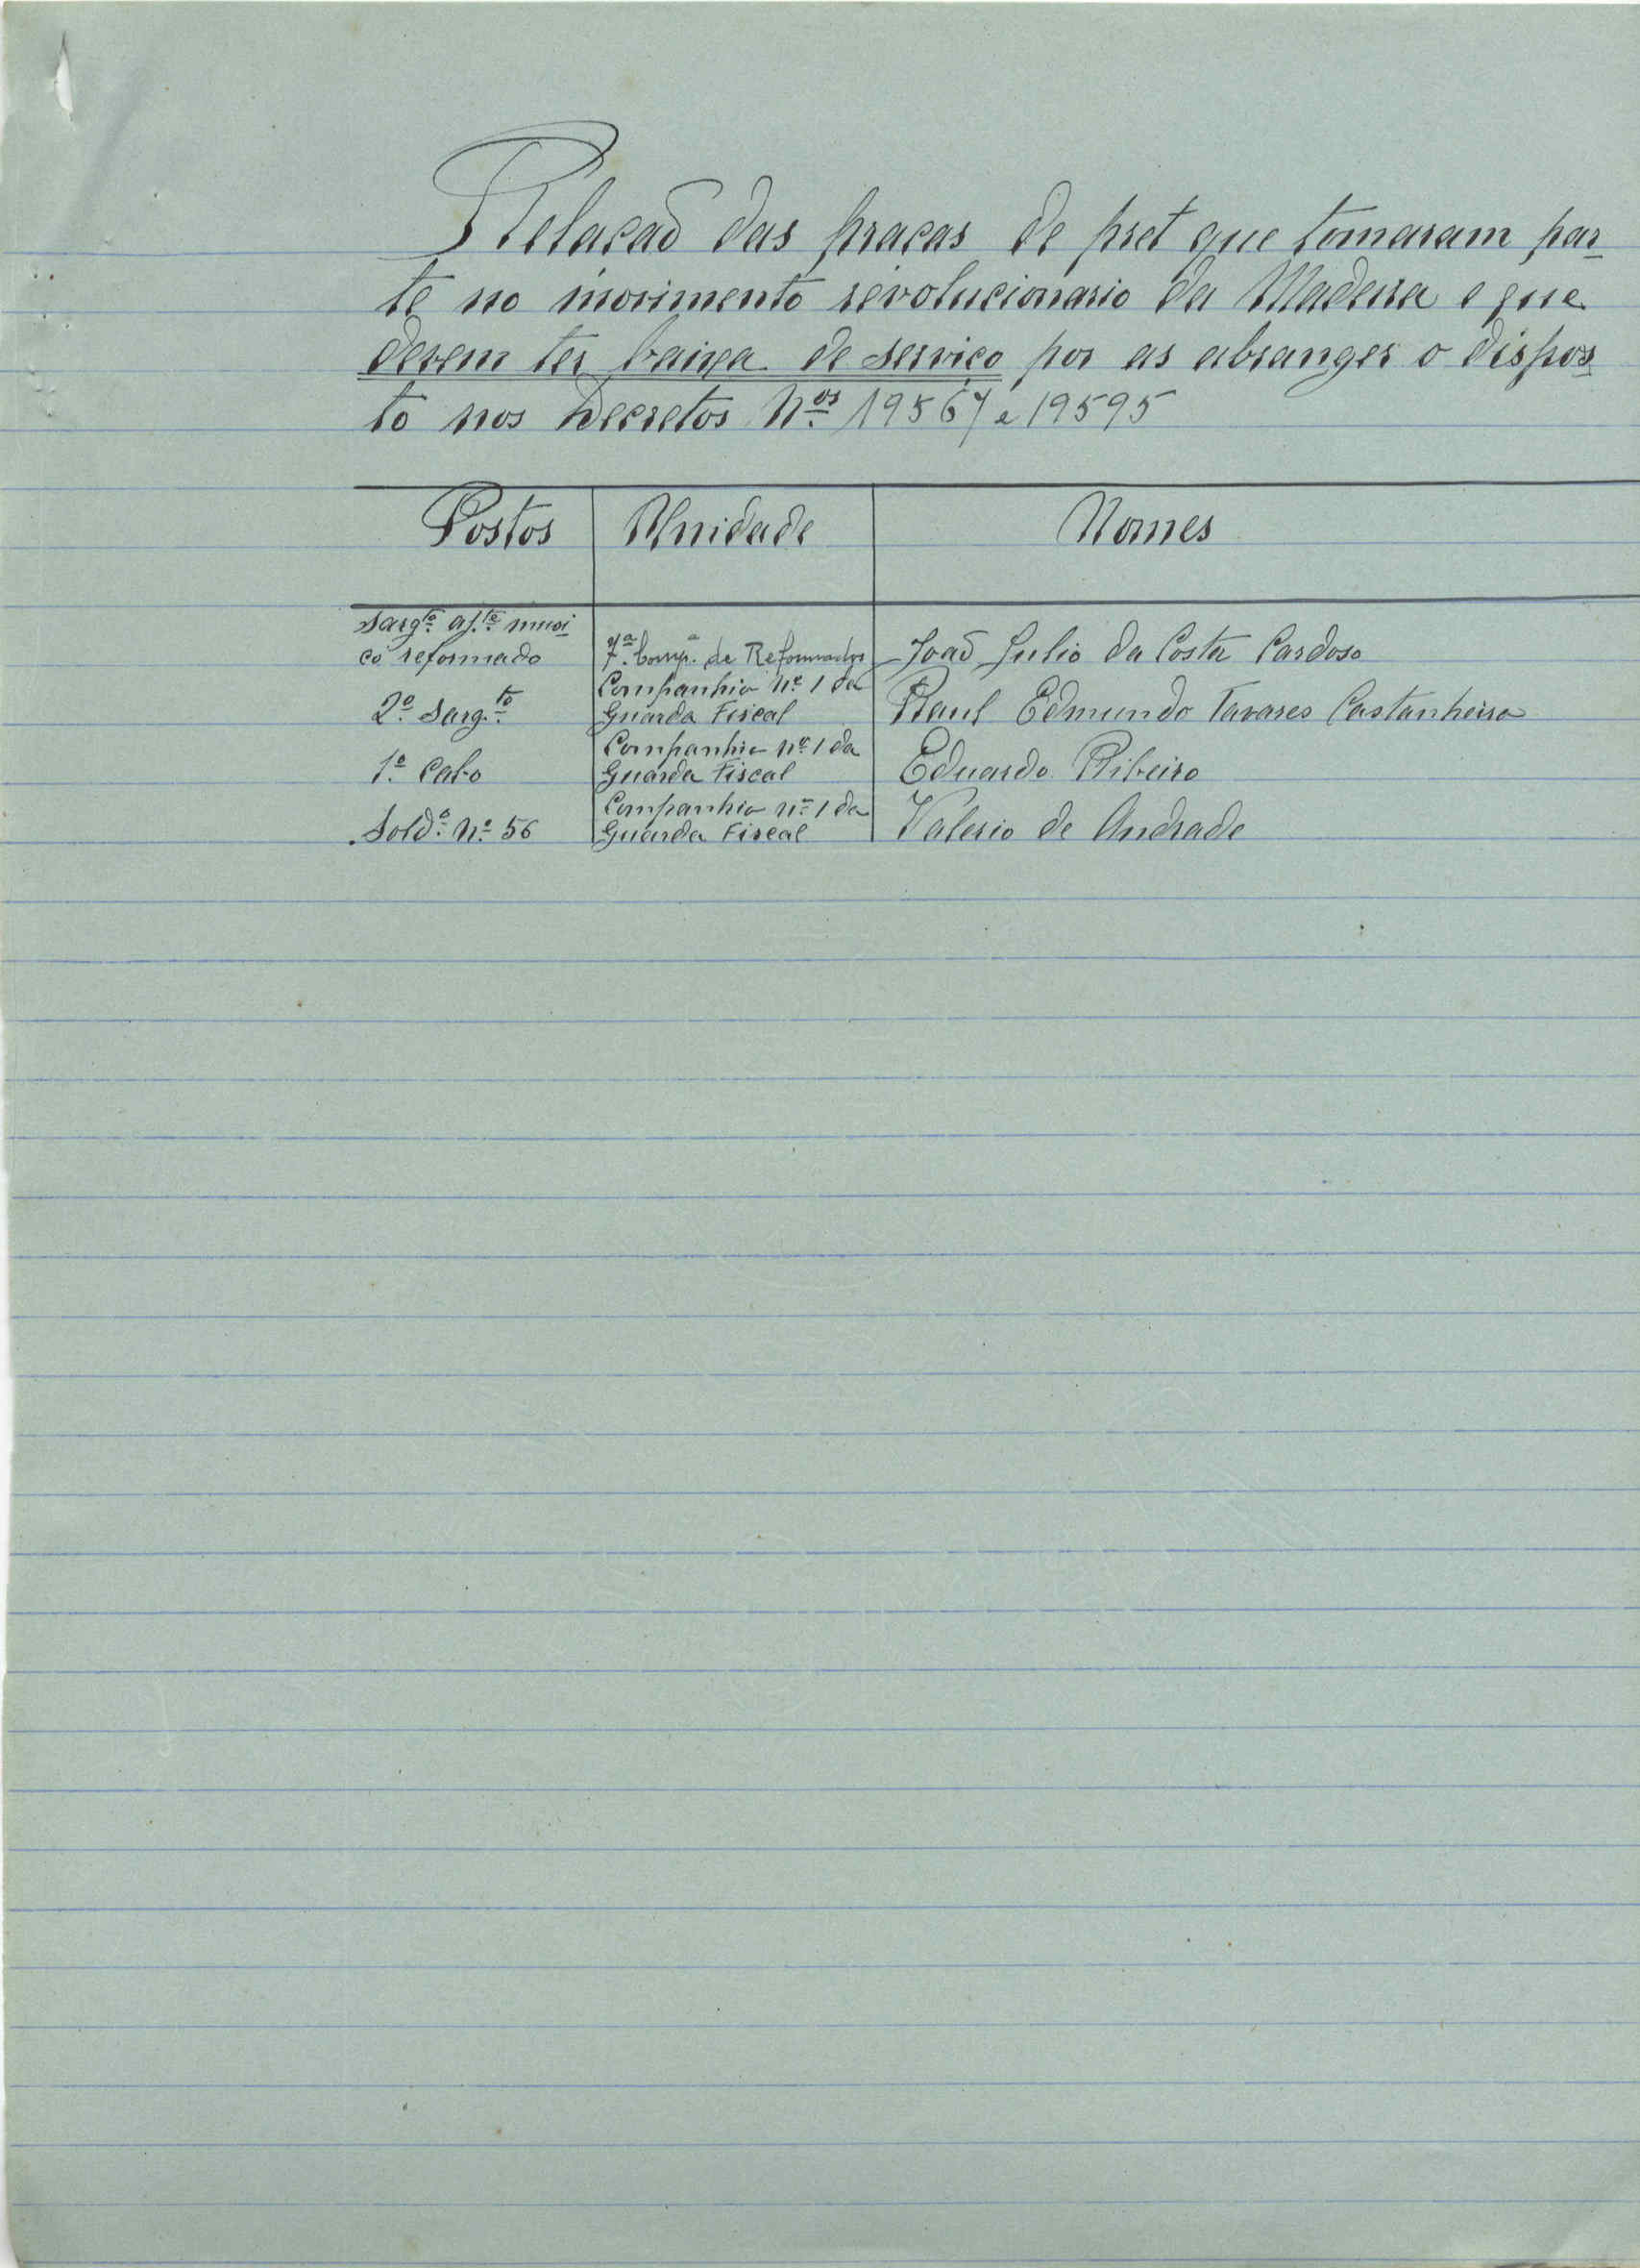 Relação das praças de pret que tomaram par-
te no movimento revolucionario da Madeira e que
devem ter baixa de serviço por as abranger o dispos-
to nos Decretos Nos 19567 e 19595
Postos Unidade Nomes
Sargto ajte musi-
co reformado 7ª Compª de Reformados João Julio da Costa Cardoso
Companhia nº 1 da
2º Sargto Guarda Fiscal Raul Edmundo Tavares Castanheira
Companhia nº 1 da
1º Cabo Guarda Fiscal Eduardo Ribeiro
Companhia nº 1 da
Soldº nº 56 Guarda Fiscal Valerio de Andrade